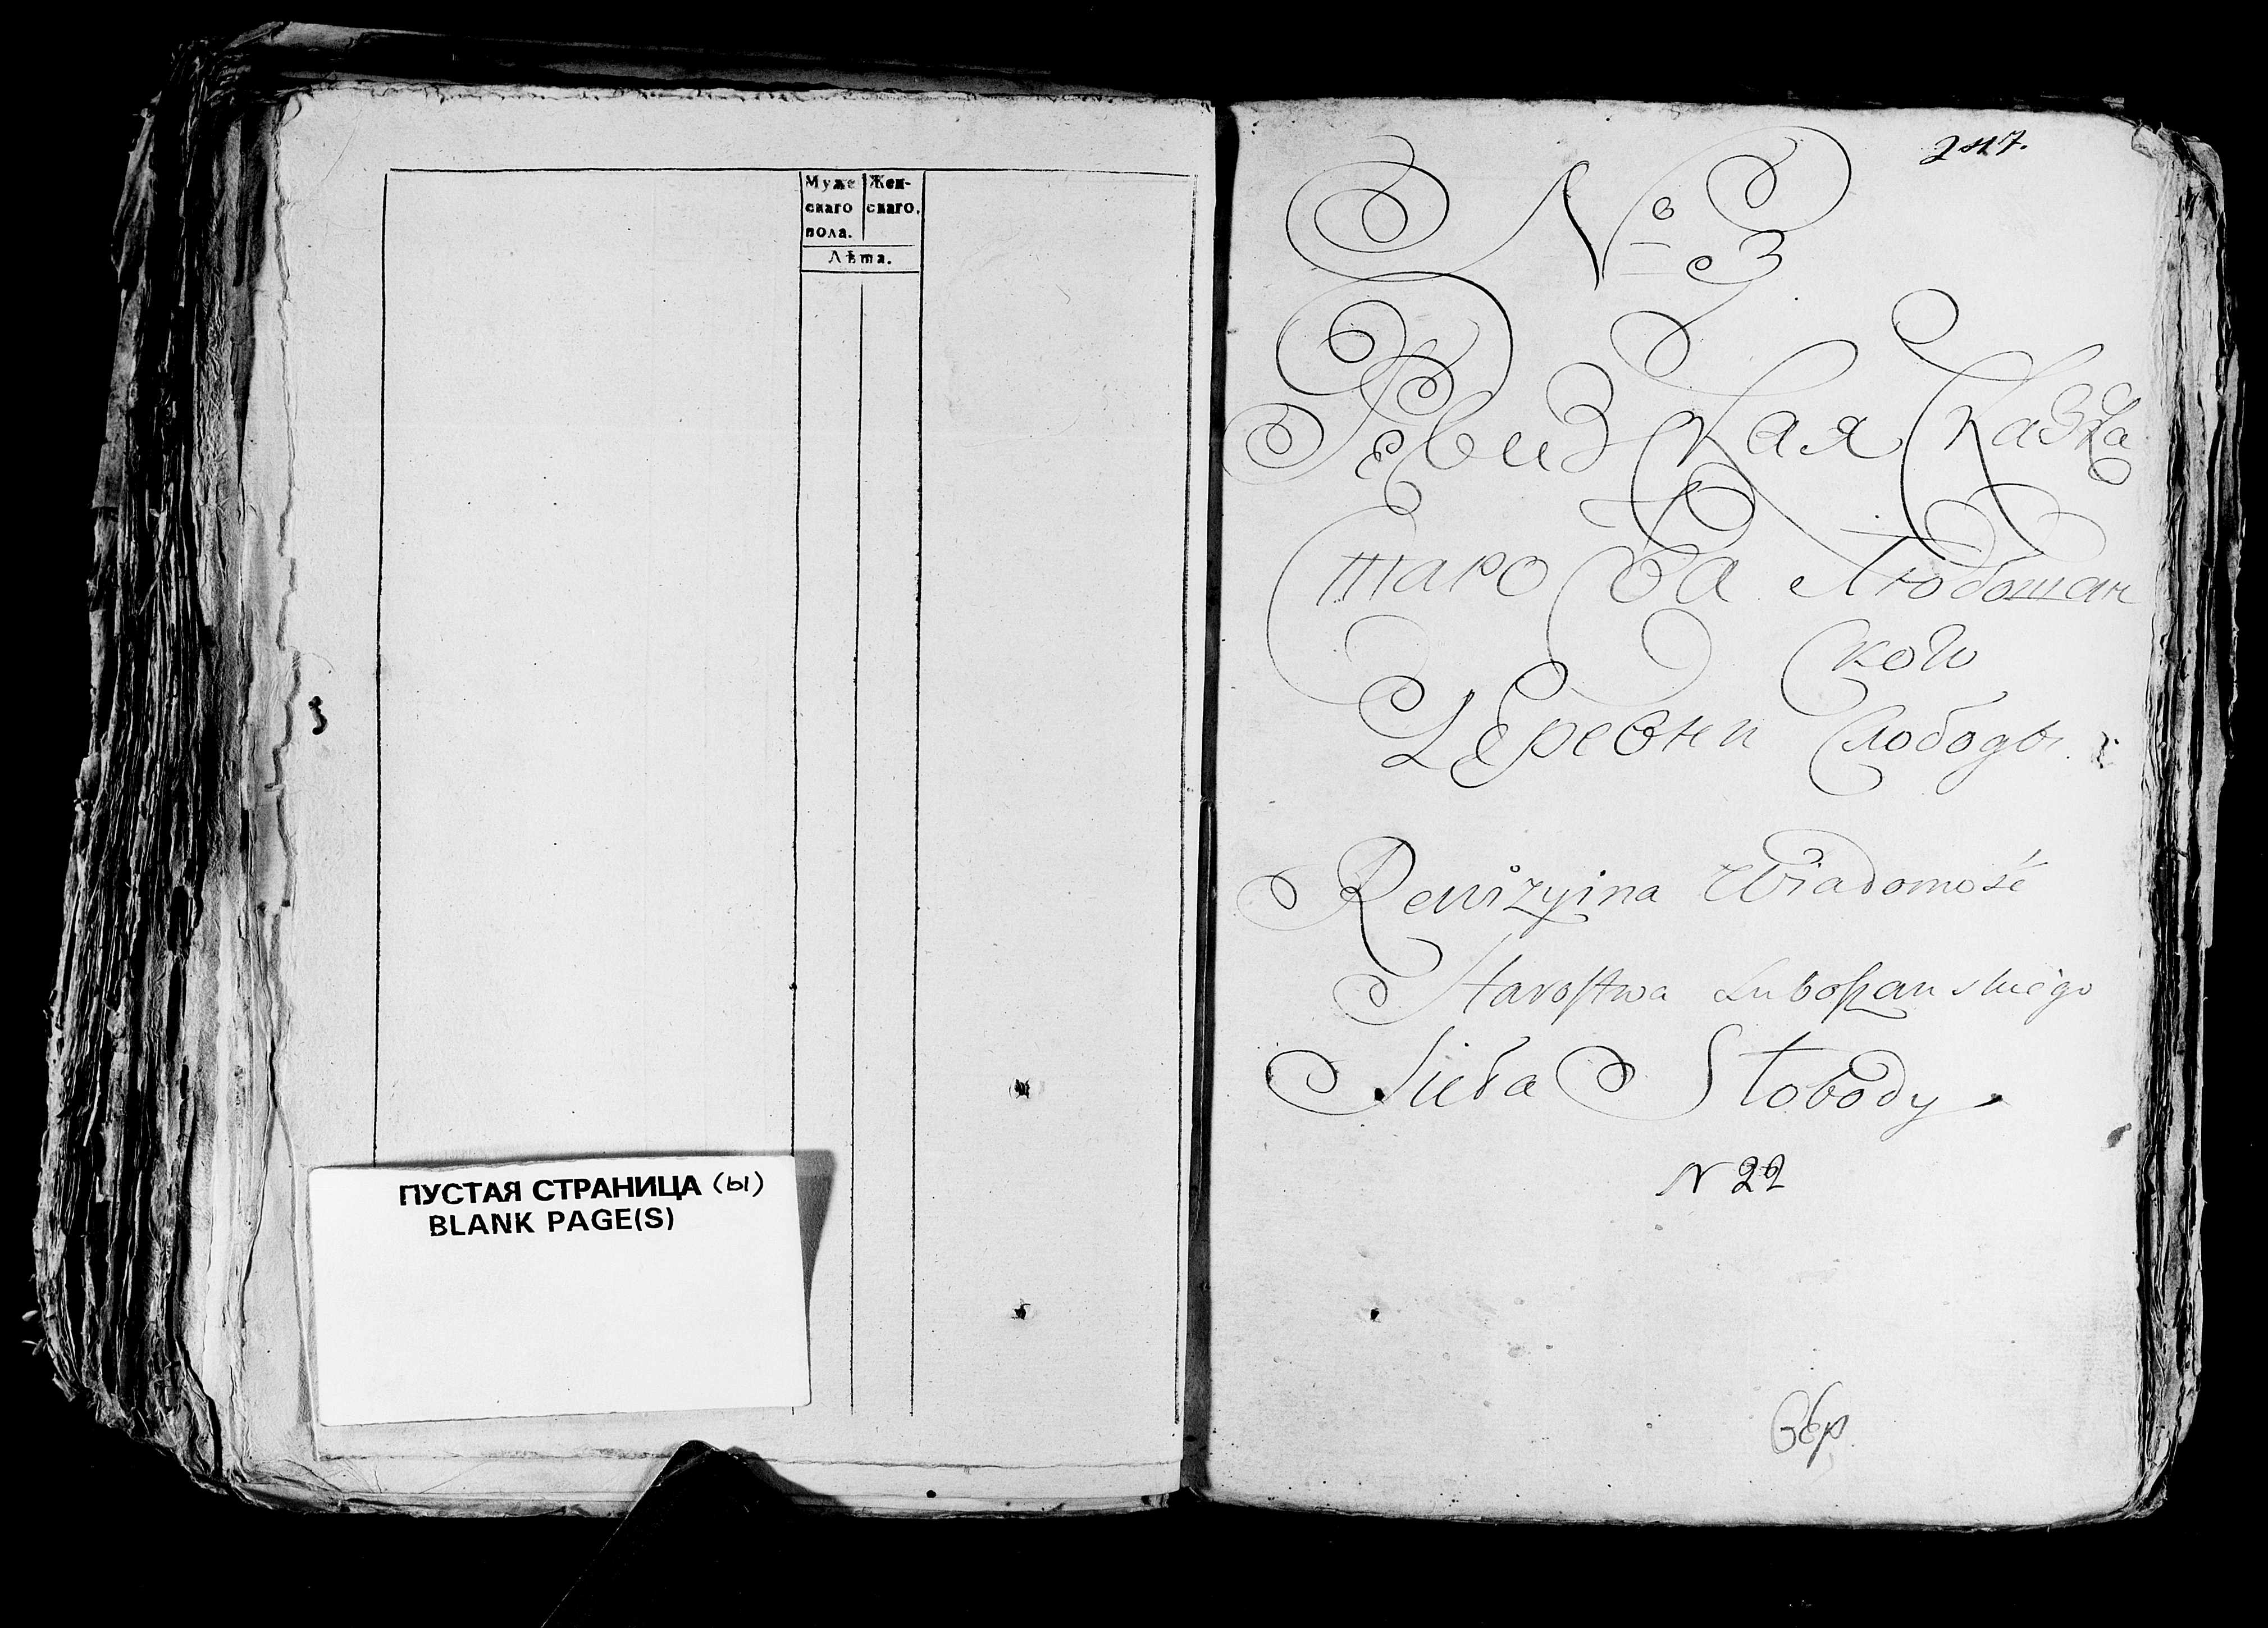 Муже Жен-
скаго скаго.
пола.
Лѣта.
ПУСТАЯ СТРАНИЦА (ы)
BLANK PAGE(S)
247.
№ 3
Ревизкая Сказка
Староства Любошан
ского
Деревни Слободы
Rewizyina Wiadomość
Starostwa Luboszanskiego
Sieła Słobody
N 22